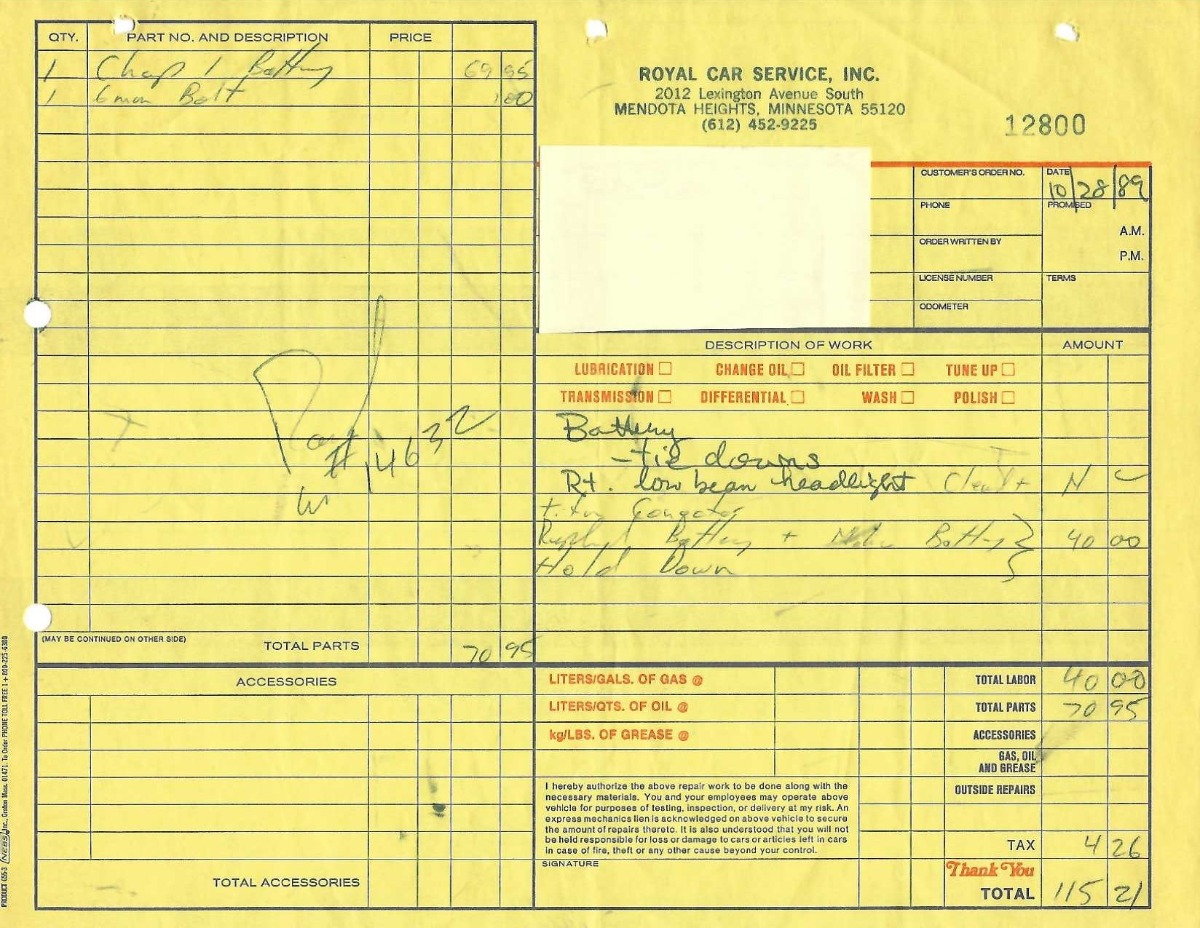 QTY. PART NO. AND DESCRIPTION PRICE
1 Chap 1 Battery 69 95
1 6 mm Bolt 1 00
Paid
# 14632
(MAY BE CONTINUED ON OTHER SIDE) TOTAL PARTS 70 95
ACCESSORIES
TOTAL ACCESSORIES
ROYAL CAR SERVICE, INC.
2012 Lexington Avenue South
MENDOTA HEIGHTS, MINNESOTA 55120
(612) 452-9225
12800
CUSTOMER'S ORDER NO. DATE 10/28/89
PHONE PROMISED
A.M.
ORDER WRITTEN BY
P.M.
LICENSE NUMBER TERMS
ODOMETER
DESCRIPTION OF WORK AMOUNT
LUBRICATION CHANGE OIL OIL FILTER TUNE UP
TRANSMISSION DIFFERENTIAL WASH POLISH
Battery
- tie downs
Rt. low beam headlight N C
Battery + Battery 40 00
Hold Down
LITERS/GALS. OF GAS @ TOTAL LABOR 40 00
LITERS/QTS. OF OIL @ TOTAL PARTS 70 95
kg/LBS. OF GREASE @ ACCESSORIES
GAS, OIL AND GREASE
OUTSIDE REPAIRS
I hereby authorize the above repair work to be done along with the
necessary materials. You and your employees may operate above
vehicle for purposes of testing, inspection, or delivery at my risk. An
express mechanics lien is acknowledged on above vehicle to secure
the amount of repairs thereto. It is also understood that you will not
be held responsible for loss or damage to cars or articles left in cars
in case of fire, theft or any other cause beyond your control.
TAX 4 26
SIGNATURE
Thank You
TOTAL 115 21
PRODUCT 655-3 NEBS Inc., Groton Mass. 01471. To Order PHONE TOLL FREE 1 + 800-225-6380